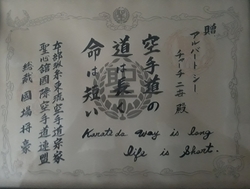 贈
アルバート・シー
チャーチ二世 殿
空手道の
道は長く
命は短い
Karate do way is long
life is short.
聖心館国際空手道連盟
総裁 國場将豪